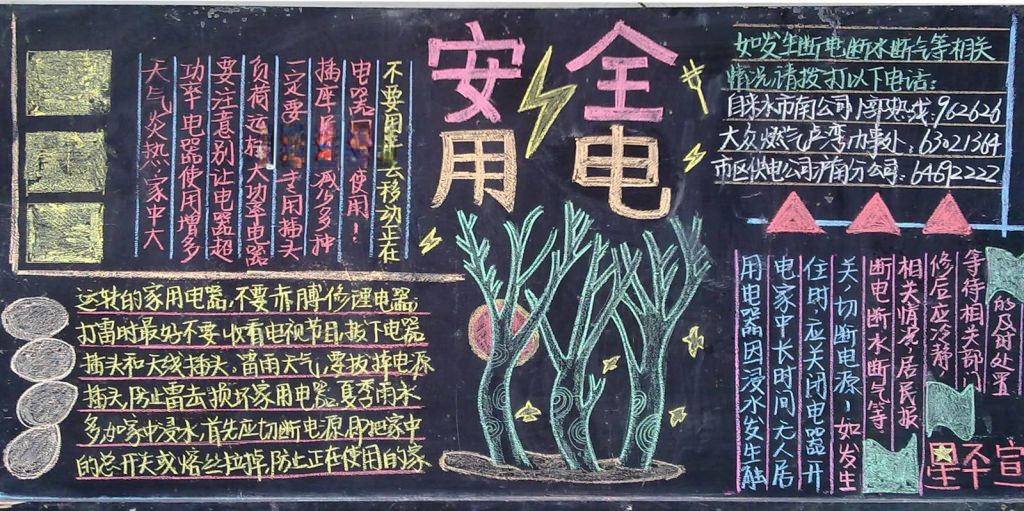 安全
用电
天气炎热,家中大
功率电器使用增多
要注意别让电器超
负荷运转大功率电器
一定要 用插头
插座 减少多种
电器 使用!
不要用 去移动正在
运转的家用电器,不要赤膊修理电器,
打雷时最好不要收看电视节目,拔下电器
插头和天线插头,雷雨天气,要拔掉电源
插头,防止雷击损坏家用电器,夏季雨水
多如家中浸水,首先应切断电源,即把家中
的总开关或熔丝拉掉,防止正在使用的家
如发生断电断水断气等相关
情况请拨打以下电话:
自来水市南公司 热线:962626
大众燃气卢湾办事处:63021364
市区供电公司沪南分公司:64692222
用电器因浸水发生触
电家中长时间无人居
住时,应关闭电器开
关,切断电源!如发生
断电断水断气等
相关情况,居民报
修后应冷静
等待相关部门
的及时处置
宣